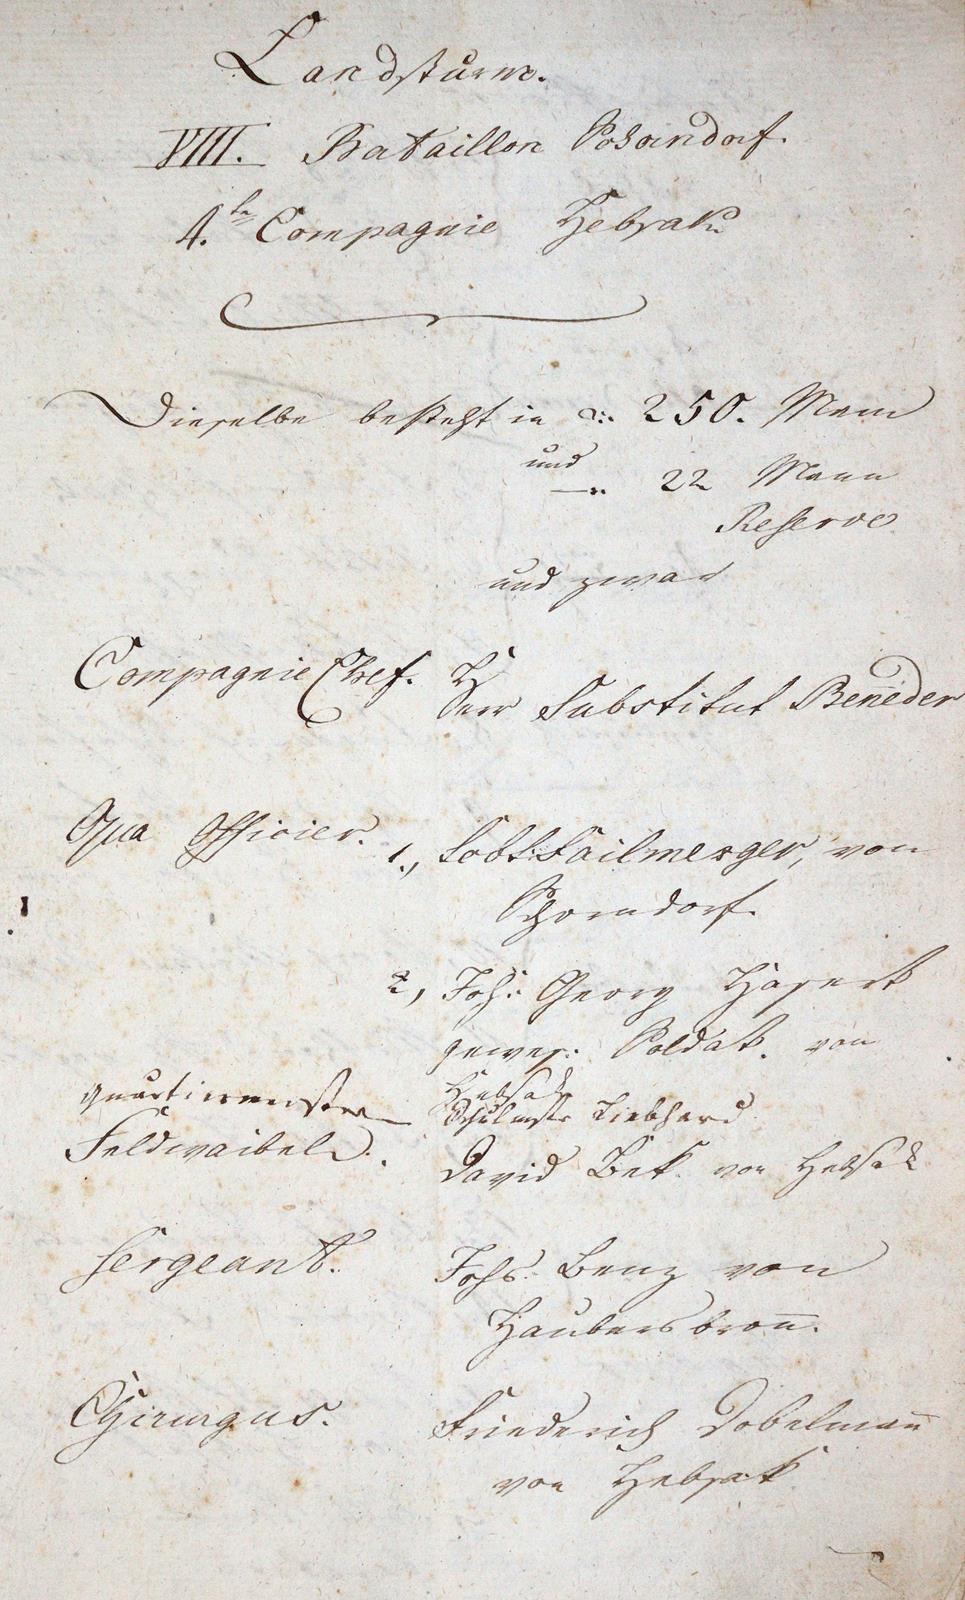 Landsturm.
VIII. Bataillon Schorndorf.
4.te Compagnie Hebsak
Dieselbe besteht in 250. Mann
und
—" 22 Mann
Reserve
und zwar
Compagnie Chef. Herr Substitut Beneder
Officier. 1., Gottl: Failmezger, von
Schorndorf.
2, Joh: Georg
gewes: Soldat. von
Hebsak
Quartiermeister Schulmstr Liebhard
Feldwaibel. David Bek von Hebsak
Sergeant. Johs: Benz von
Haubersbron̄.
Chirurgus. Friederich Dobelman̄
von Hebsak